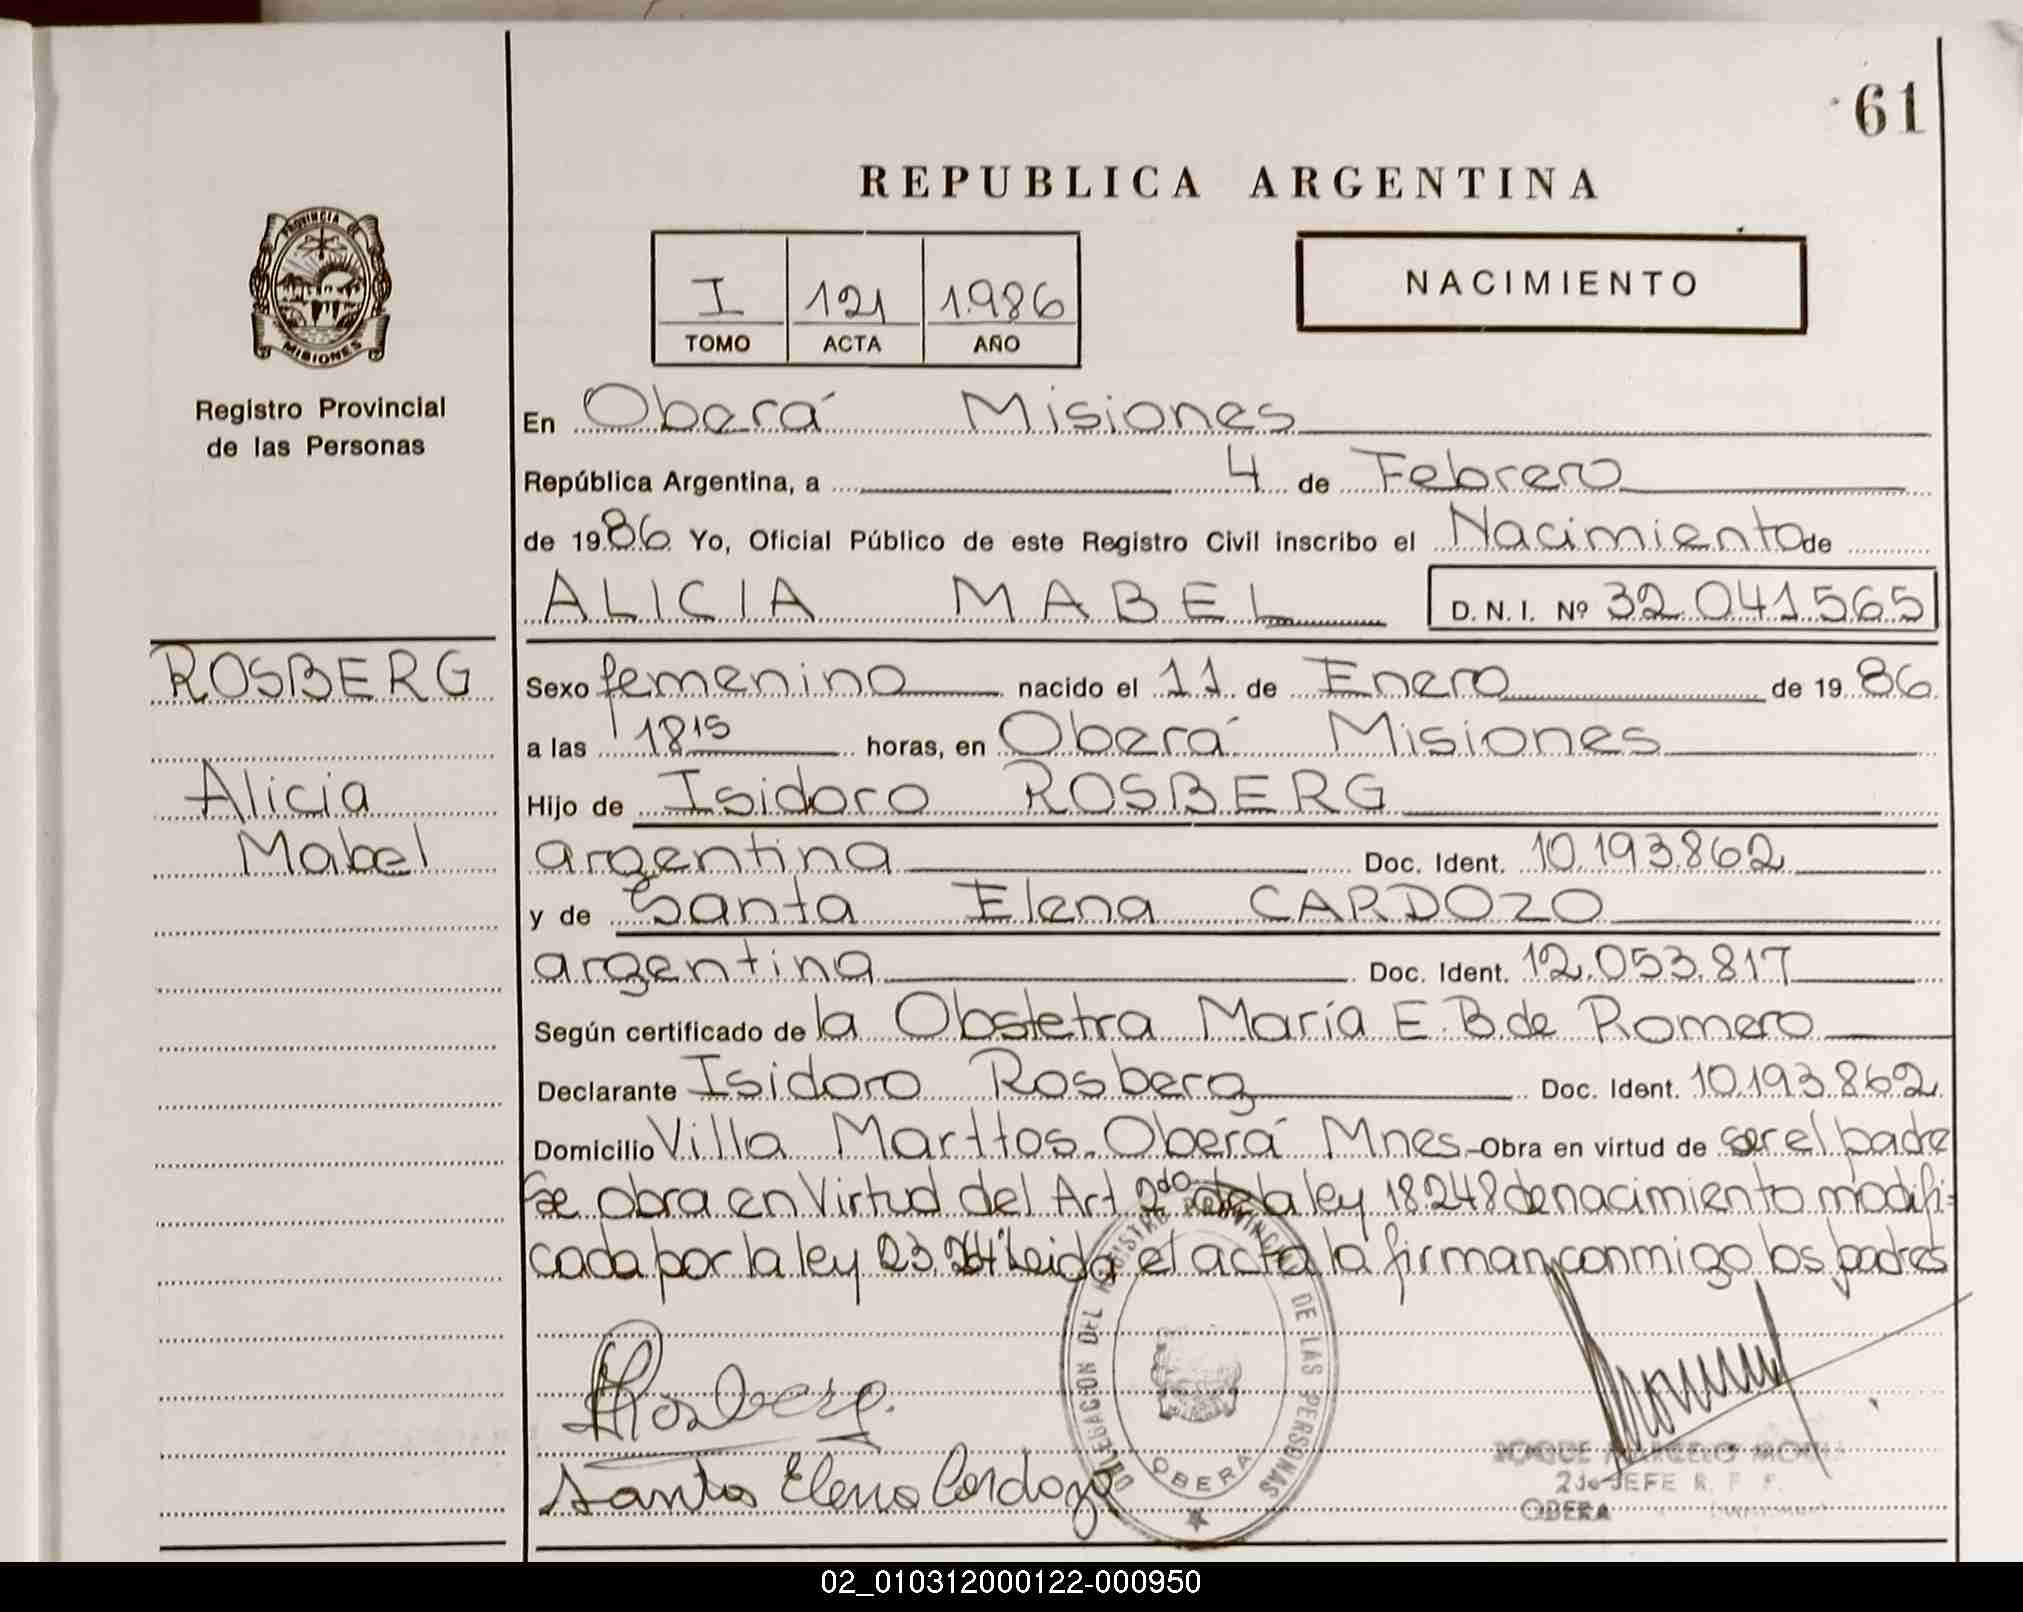 61
REPUBLICA ARGENTINA
PROVINCIA DE
MISIONES
Registro Provincial
de las Personas
I 121 1.986
TOMO ACTA AÑO
NACIMIENTO
En Oberá Misiones
República Argentina, a 4 de Febrero
de 1986 Yo, Oficial Público de este Registro Civil inscribo el Nacimiento de
ALICIA MABEL D. N. I. Nº 32.041.565
ROSBERG
Alicia
Mabel
Sexo femenino nacido el 11 de Enero de 1986
a las 18 15 horas, en Oberá Misiones
Hijo de Isidoro ROSBERG
argentina Doc. Ident. 10.193.862
y de Santa Elena CARDOZO
argentina Doc. Ident. 12.053.817
Según certificado de la Obstetra María E. B. de Romero
Declarante Isidoro Rosberg Doc. Ident. 10.193.862
Domicilio Villa Marttos. Oberá Mnes - Obra en virtud de ser el padre
Se obra en Virtud del Art 2do de la ley 18248 de nacimiento modifi-
cada por la ley 23.264 Leida el acta la firman conmigo los padres
Rosberg.
Santa Elena Cardozo
DELEGACION DEL REGISTRO PROVINCIAL DE LAS PERSONAS
OBERA
ROQUE
2do JEFE R. P. P.
OBERA
02_010312000122-000950